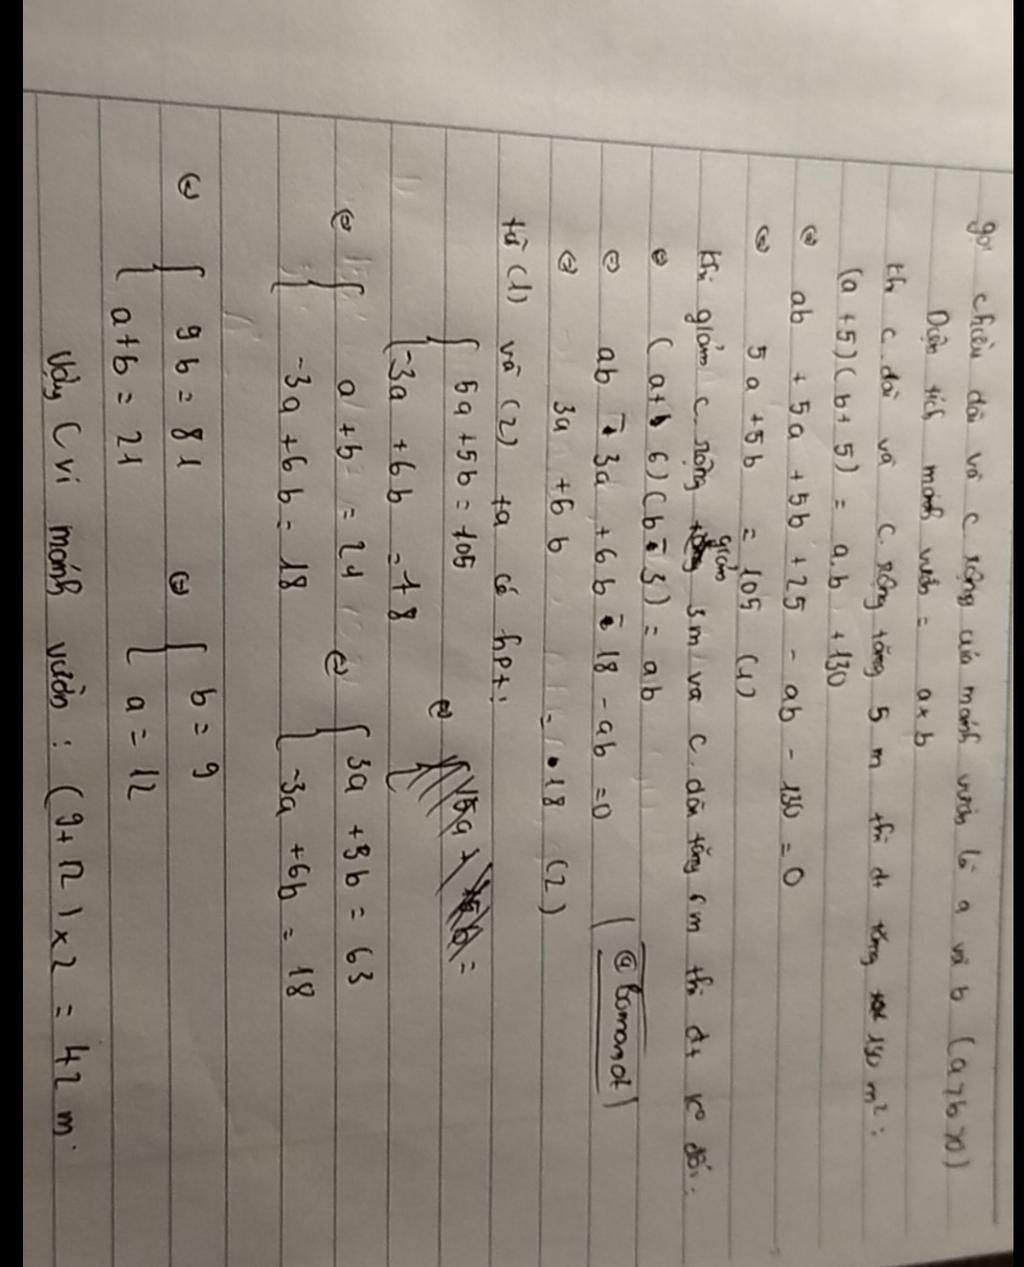 gọi chiều dài và c rộng của mảnh vườn là a và b (a>b>0)
Diện tích mảnh vườn = a×b
Khi c dài và c. rộng tăng 5 m thì dt tăng 130 m²:
(a+5)(b+5) = a.b +130
⇔ ab + 5a + 5b + 25 - ab - 130 = 0
⇔ 5a + 5b = 105 (1)
Khi giảm c. rộng giảm 3m và c. dài tăng 6m thì dt ko đổi:
⇔ (a+6)(b-3) = ab
⇔ ab - 3a + 6b - 18 - ab = 0
@Bomandt
⇔ 3a + 6b = 18 (2)
từ (1) và (2) ta có hpt:
{ 5a + 5b = 105
{ -3a + 6b = 18 ⇔
⇔ { a+b = 21 ⇔ { 3a + 3b = 63
{ -3a + 6b = 18 { -3a + 6b = 18
⇔ { 9b = 81 ⇔ { b = 9
{ a+b = 21 { a = 12
Vậy C vi mảnh vườn : (9+12)×2 = 42 m.